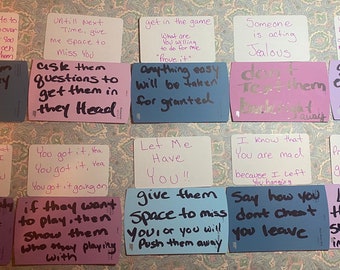 Until Next
Time, give
me space to
Miss You!
get in the game
what are
You willing
to do for me
"Prove it"
Someone
is acting
Jealous
ask them
questions to
get them in
they Head
anything easy
will be taken
for granted
them
away
You got it,
You got it,
You got it going on
Let Me
Have
You!!
I know that
You are mad
because I left
You hanging
if they want
to play, then
show them
who they playing
with
give them
space to miss
you, or you will
Push them away
Say how you
dont cheat
you leave